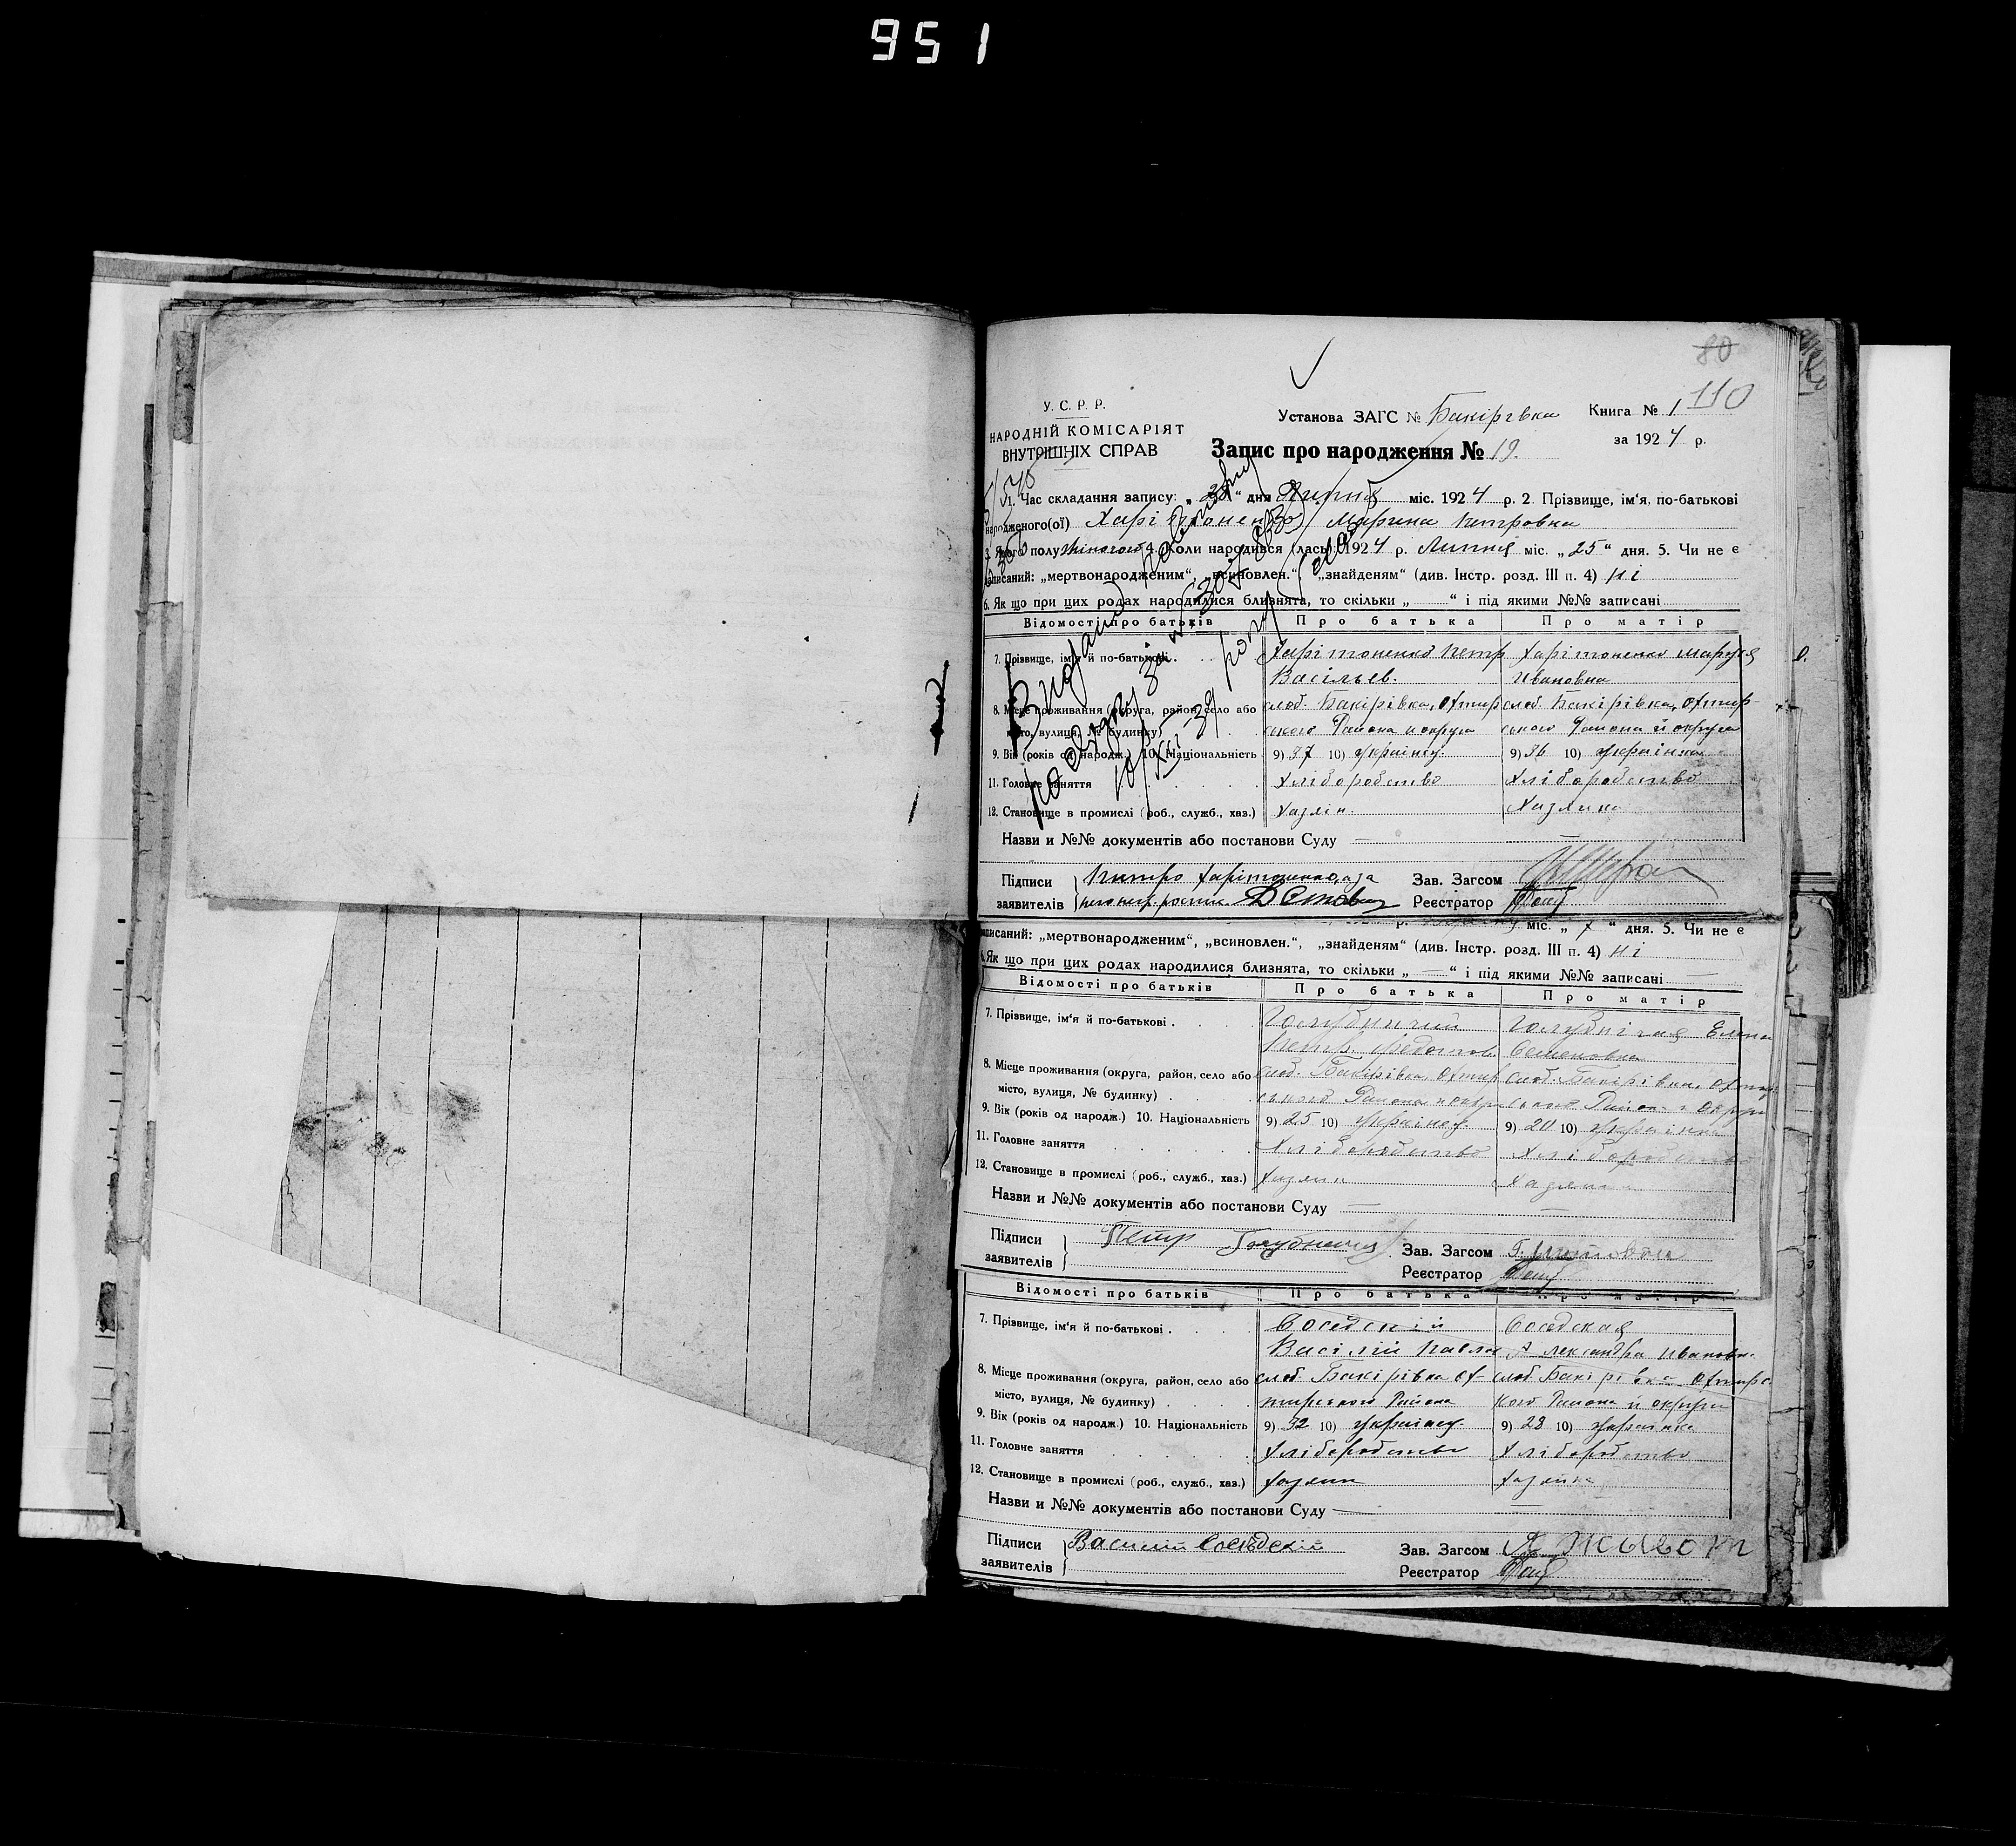 951
80
110
У. С. Р. Р.
НАРОДНІЙ КОМІСАРІЯТ
ВНУТРІШНІХ СПРАВ
Установа ЗАГС № Бакірівка Книга № 1
за 1924 р.
Запис про народження № 19.
1. Час складання запису: „28“ дня Липня міс. 1924 р. 2. Прізвище, ім'я, по-батькові
народженого(ої) Харітоненко Марина Петровна
3. Якого полу жіночої 4. Коли народився (лась) 1924 р. Липня міс. „25“ дня. 5. Чи не є
записаний: „мертвонародженим“, „всиновлен.“, „знайденям“ (див. Інстр. розд. III п. 4) ні
6. Як що при цих родах народилися близнята, то скільки „ “ і під якими №№ записані
Відомості про батьків Про батька Про матір
7. Прізвище, ім'я й по-батькові . Харітоненко Петр Харітоненко Маруся
Васільев. Ивановна
8. Місце проживання (округа, район, село або слоб. Бакірівка, Охтир слоб. Бакірівка, Охтир-
місто, вулиця, № будинку) ського Района и округи ського Района й округи
9. Вік (років од народж.) 10. Національність 9) 37 10) Українец. 9) 36 10) Українка
11. Головне заняття Хліборобство Хліборобство
12. Становище в промислі (роб., служб., хаз.) Хазяін. Хазяика
Назви и №№ документів або постанови Суду —
Підписи заявителів Петро Харітоненко, а за
Зав. Загсом
Реєстратор
міс. „ 7 “ дня. 5. Чи не є
записаний: „мертвонародженим“, „всиновлен.“, „знайденям“ (див. Інстр. розд. III п. 4) ні
Як що при цих родах народилися близнята, то скільки „ — “ і під якими №№ записані —
Відомості про батьків Про батька Про матір
7. Прізвище, ім'я й по-батькові . Голубничий Голубнічая Елена
Петр. Федотов. Семеновна
8. Місце проживання (округа, район, село або слоб. Бакірівка, Охтир слоб. Бакірівка, Охтир
місто, вулиця, № будинку) . ського Района и округи ського Района и Округи
9. Вік (років од народж.) 10. Національність 9) 25 10) Українец 9) 20 10) Українка
11. Головне заняття Хліборобство Хліборобство
12. Становище в промислі (роб., служб., хаз.) Хазяин Хазяика
Назви и №№ документів або постанови Суду —
Підписи заявителів Петр Голубничий
Зав. Загсом
Реєстратор
Відомості про батьків Про батька Про матір
7. Прізвище, ім'я й по-батькові . Соседскій Соседская
Васілій Павлов Александра Ивановн.
8. Місце проживання (округа, район, село або слоб. Бакірівка Ох- слоб. Бакірівка Охтирс
місто, вулиця, № будинку) . тирського Района кого Района и округи
9. Вік (років од народж.) 10. Національність 9) 32 10) Українец. 9) 28 10) Українка
11. Головне заняття Хліборобство Хліборобство
12. Становище в промислі (роб., служб., хаз.) Хазяин Хазяйка
Назви и №№ документів або постанови Суду —
Підписи заявителів Василий Соседский
Зав. Загсом Я Живот
Реєстратор